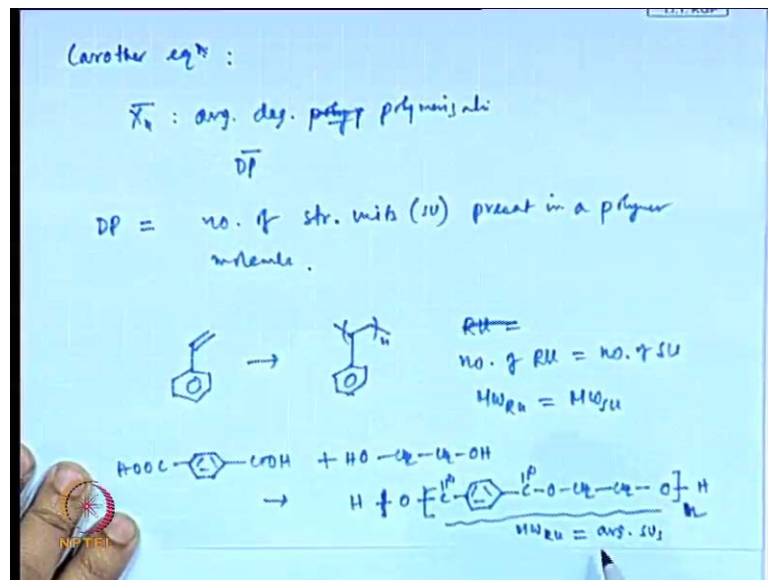 Carother eqn :
X̄n : avg. deg. polymerisati
D̄P̄
DP = no. of str. units (SU) present in a polymer
molecule.
→ n
RU =
no. of RU = no. of SU
MW_RU = MW_SU
HOOC- -COOH + HO-CH2-CH2-OH
→ H O [ C- -C-O-CH2-CH2-O ]n H
MW_RU = avg. SUs
NPTEL